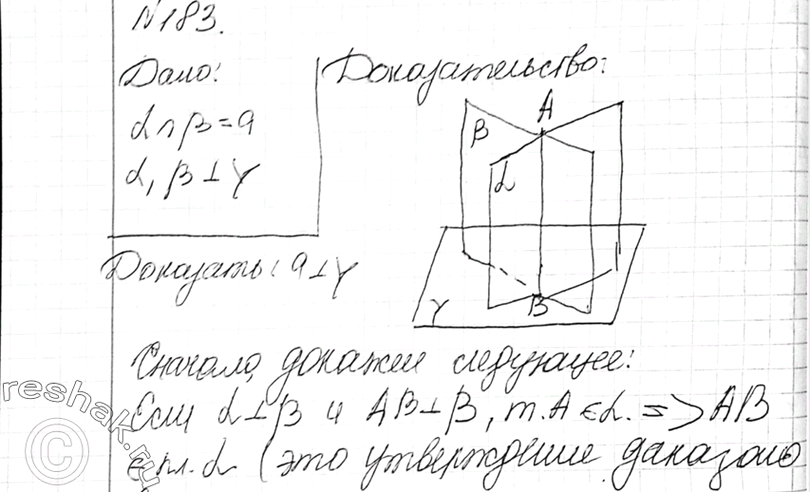 N183.
Дано:
α∩β=a
α, β⊥γ
Доказать: a⊥γ
Доказательство:
A
β
α
B
γ
Сначала докажем следующее:
Если α⊥β и AB⊥β, т.A∈α. => AB
∈ пл. α (это утверждение доказано
reshak.ru
©